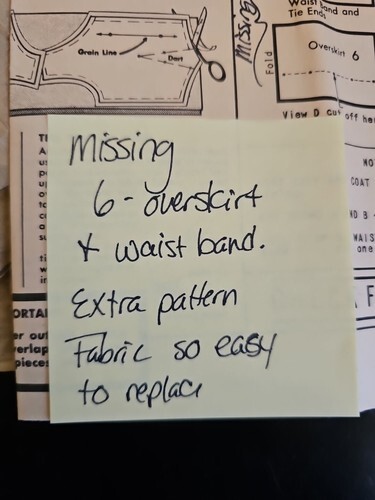 Grain Line
Dart
missing
Waist Band and
Tie Ends
Overskirt 6
Fold
View D cut off he
COAT
missing
6 - overskirt
+ waist band.
Extra pattern
Fabric so easy
to replace
ORTA
er ou
verlap
pieces